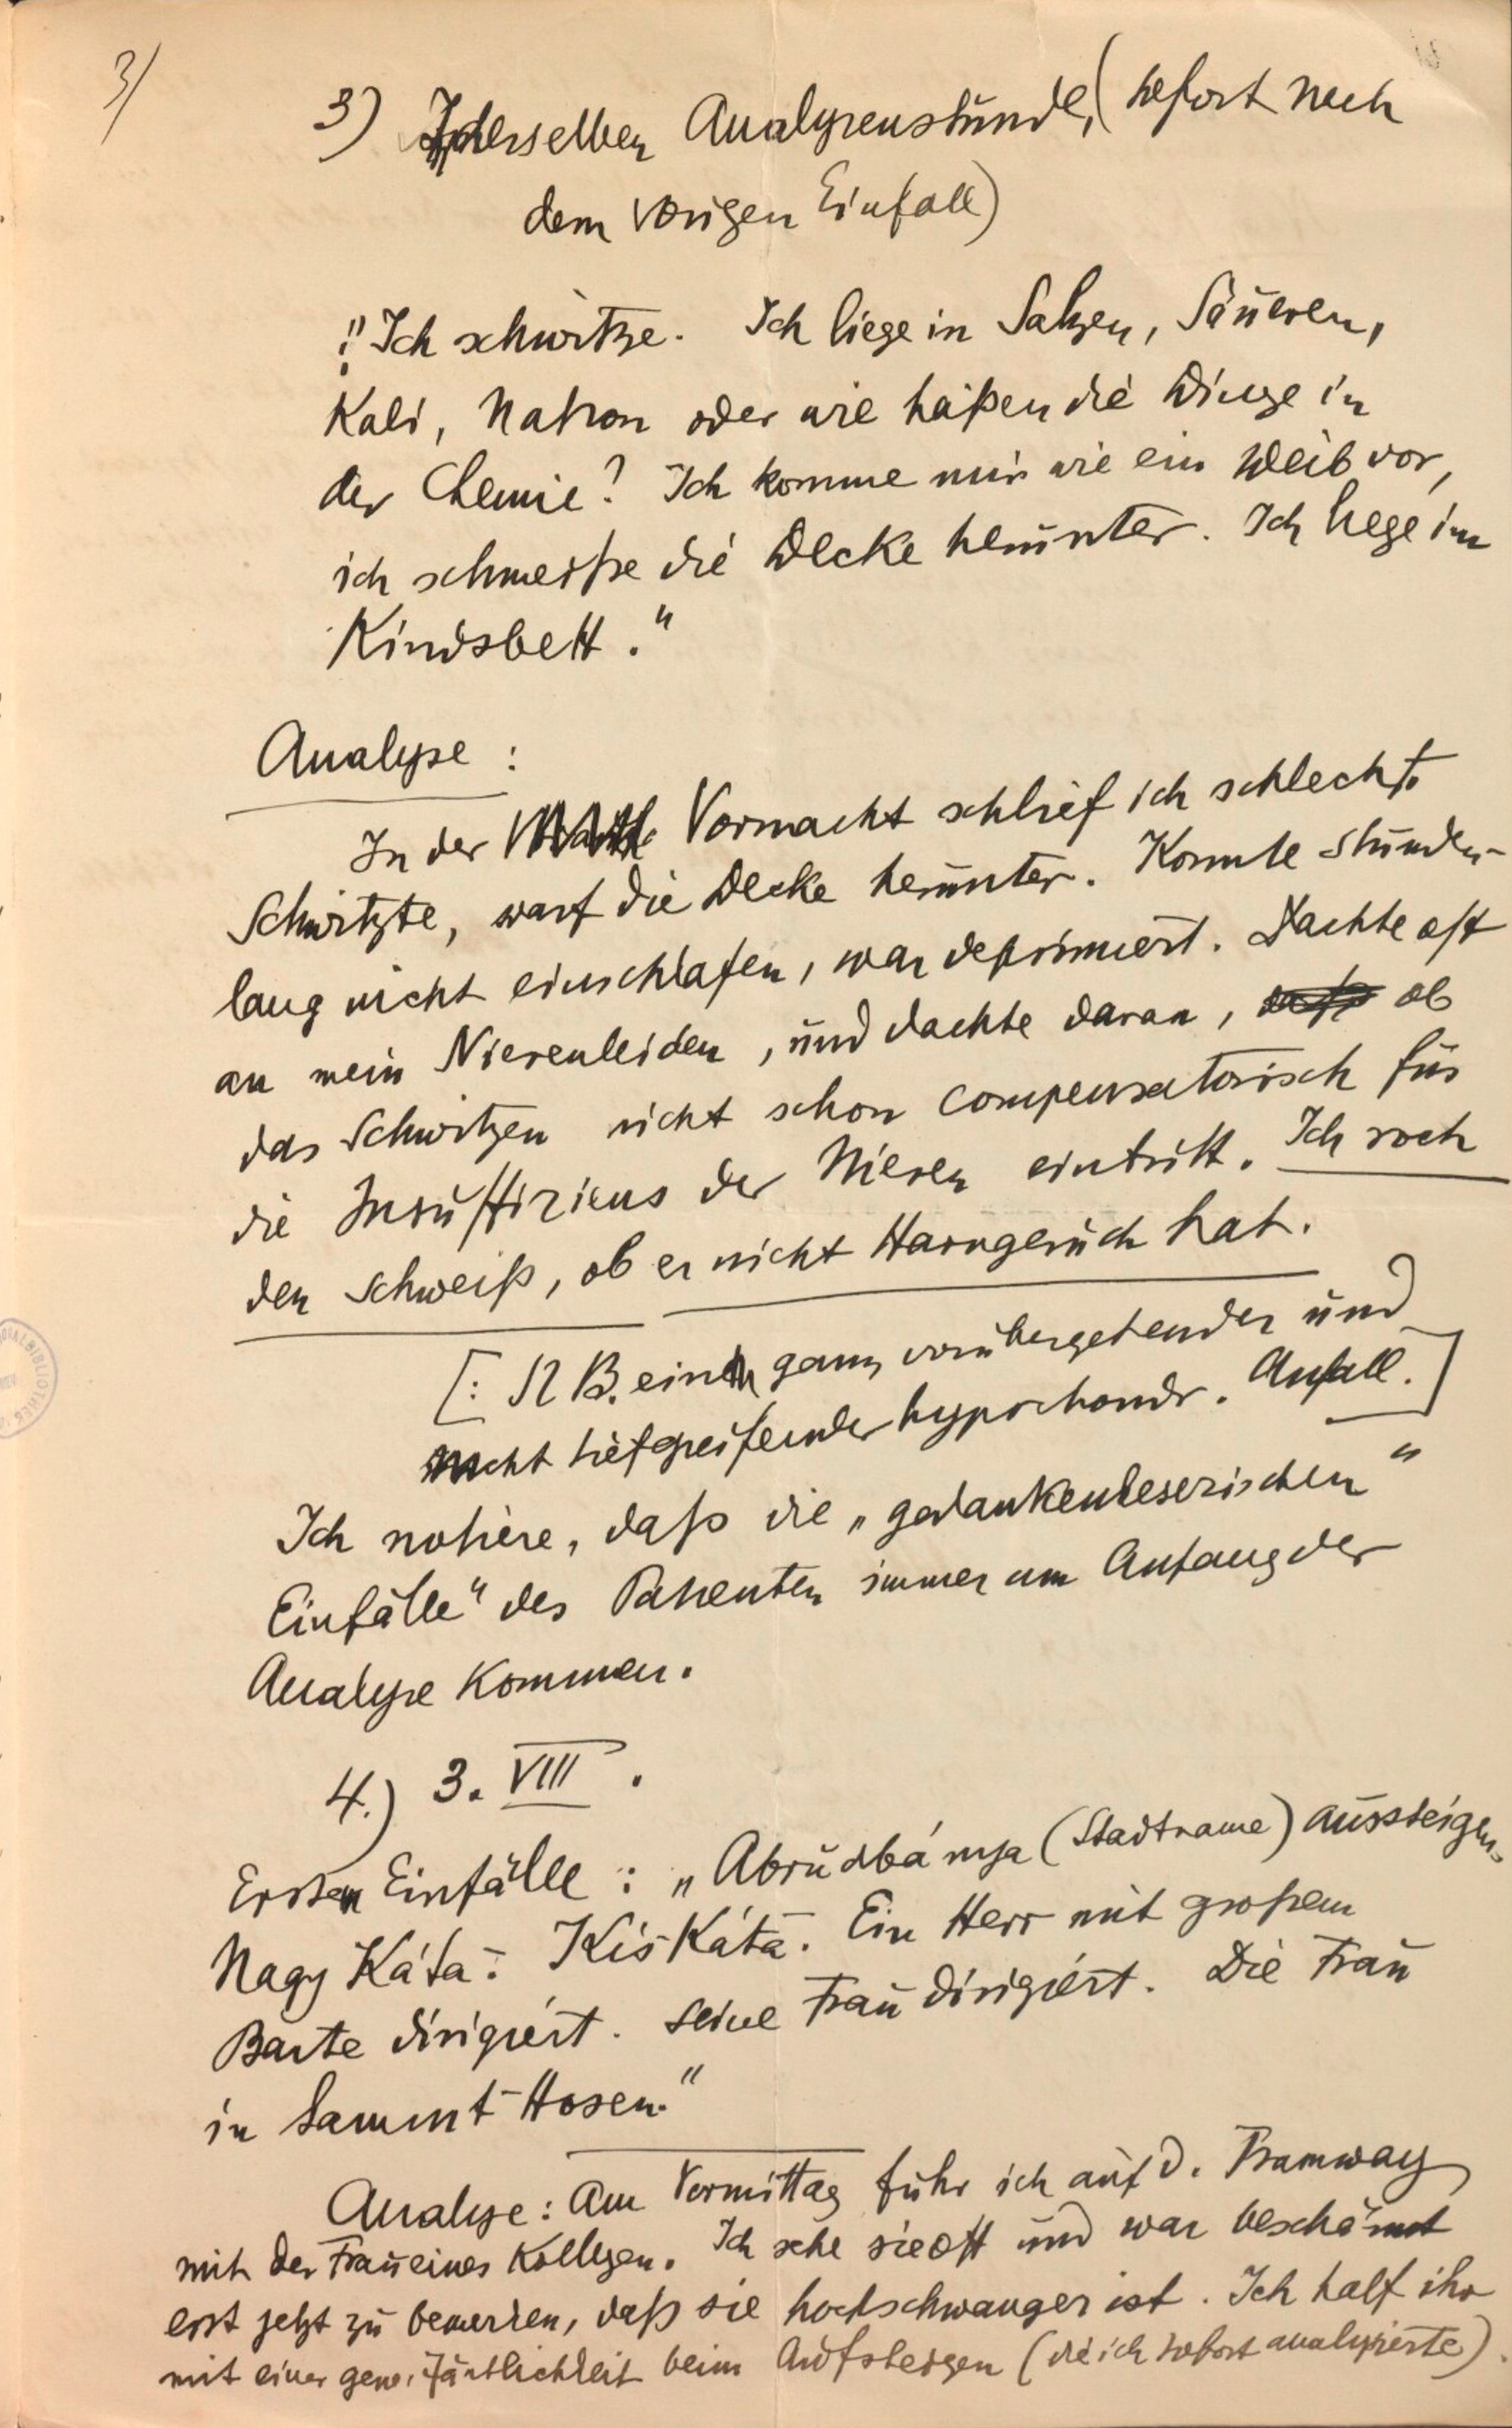 3/
3) In derselben Analysenstunde, (sofort nach
dem vorigen Einfall)
"Ich schwitze. Ich liege in Salzen, Säueren,
Kali, Natron oder wie haißen die Dinge in
der Chemie? Ich komme mir wie ein Weib vor,
ich schmeiße die Decke herunter. Ich liege im
Kindsbett."
Analyse:
In der Vornacht schlief ich schlecht.
Schwitzte, warf die Decke herunter. Konnte stunden-
lang nicht einschlafen, war deprimiert. Dachte oft
an mein Nierenleiden, und dachte daran, ob
das Schwitzen nicht schon compensatorisch für
die Insuffizienz der Nieren eintritt. Ich roch
den Schweiß, ob er nicht Harngeruch hat.
[: NB. ein ganz vorübergehender und
nicht tiefgreifender hypochondr. Anfall.]
Ich notiere, daß die „gedankenleserischen"
Einfälle" des Patienten immer am Anfang der
Analyse kommen.
4.) 3. VIII.
Ersten Einfälle: „Abrudbánya (Stadtname) aussteigen.
Nagy Káta. Kis Káta. Ein Herr mit großem
Barte dirigiert. Seine Frau dirigiert. Die Frau
in Sammt-Hosen."
Analyse: Am Vormittag fuhr ich auf d. Tramway
mit der Frau eines Kollegen. Ich sehe sie oft und war beschämt
erst jetzt zu bemerken, daß sie hochschwanger ist. Ich half ihr
mit einer gew. Zärtlichkeit beim Aufsteigen (die ich sofort analysierte).